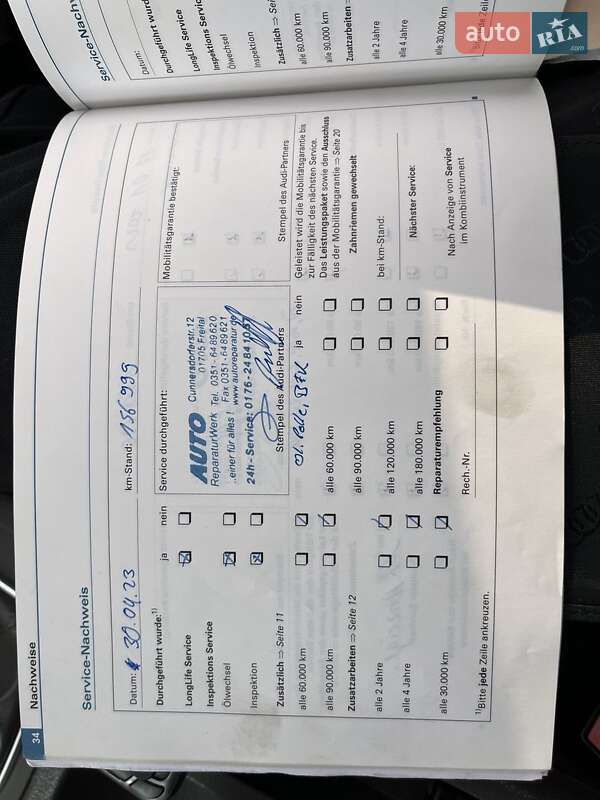 auto RIA .com
Service-Nachw
Datum:
Durchgeführt wurd
LongLife Service
Inspektions Service
Ölwechsel
Inspektion
Zusätzlich ⇒ Seit
alle 60.000 km
alle 90.000 km
Zusatzarbeiten ⇒
alle 2 Jahre
alle 4 Jahre
alle 30.000 km
34 Nachweise
Service-Nachweis
Datum: 30.04.23 km-Stand: 156 999
Durchgeführt wurde:¹⁾ ja nein Service durchgeführt: Mobilitätsgarantie bestätigt:
LongLife Service
Inspektions Service
Ölwechsel
Inspektion
AUTO Cunnersdorferstr.12
01705 Freital
ReparaturWerk Tel. 0351- 64 89 620
..einer für alles ! Fax 0351- 64 89 621
www.autoreparatur.de
24h - Service: 0176 - 24 84 10 57
Stempel des Audi-Partners Stempel des Audi-Partners
Zusätzlich ⇒ Seite 11
alle 60.000 km
alle 90.000 km
Zusatzarbeiten ⇒ Seite 12
alle 2 Jahre
alle 4 Jahre
alle 30.000 km
ja nein
alle 60.000 km
alle 90.000 km
alle 120.000 km
alle 180.000 km
Reparaturempfehlung
Rech.-Nr.
Geleistet wird die Mobilitätsgarantie bis
zur Fälligkeit des nächsten Service.
Das Leistungspaket sowie den Ausschluss
aus der Mobilitätsgarantie ⇒ Seite 20
Zahnriemen gewechselt
bei km-Stand:
Nächster Service:
Nach Anzeige von Service
im Kombiinstrument
¹⁾Bitte jede Zeile ankreuzen.